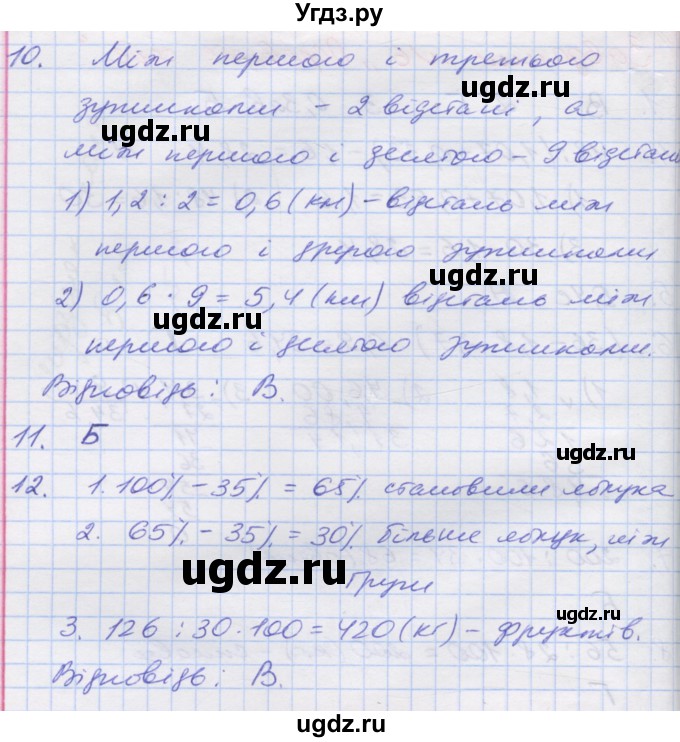 Угдз.ру
10. Між першою і третьою
зупинками – 2 відстані, а
між першою і десятою – 9 відстань
1) 1,2 : 2 = 0,6 (км) – відстань між
першою і другою зупинками
2) 0,6 · 9 = 5,4 (км) відстань між
першою і десятою зупинками.
Відповідь: В.
11. Б
12. 1. 100% – 35% = 65% становили яблука
2. 65% – 35% = 30% більше яблук, ніж
груш
3. 126 : 30 · 100 = 420 (кг) – фруктів.
Відповідь: В.
ugdz.ru
ugdz.ru
ugdz.ru
ugdz.ru
ugdz.ru
ugdz.ru
ugdz.ru
ugdz.ru
ugdz.ru
ugdz.ru
ugdz.ru